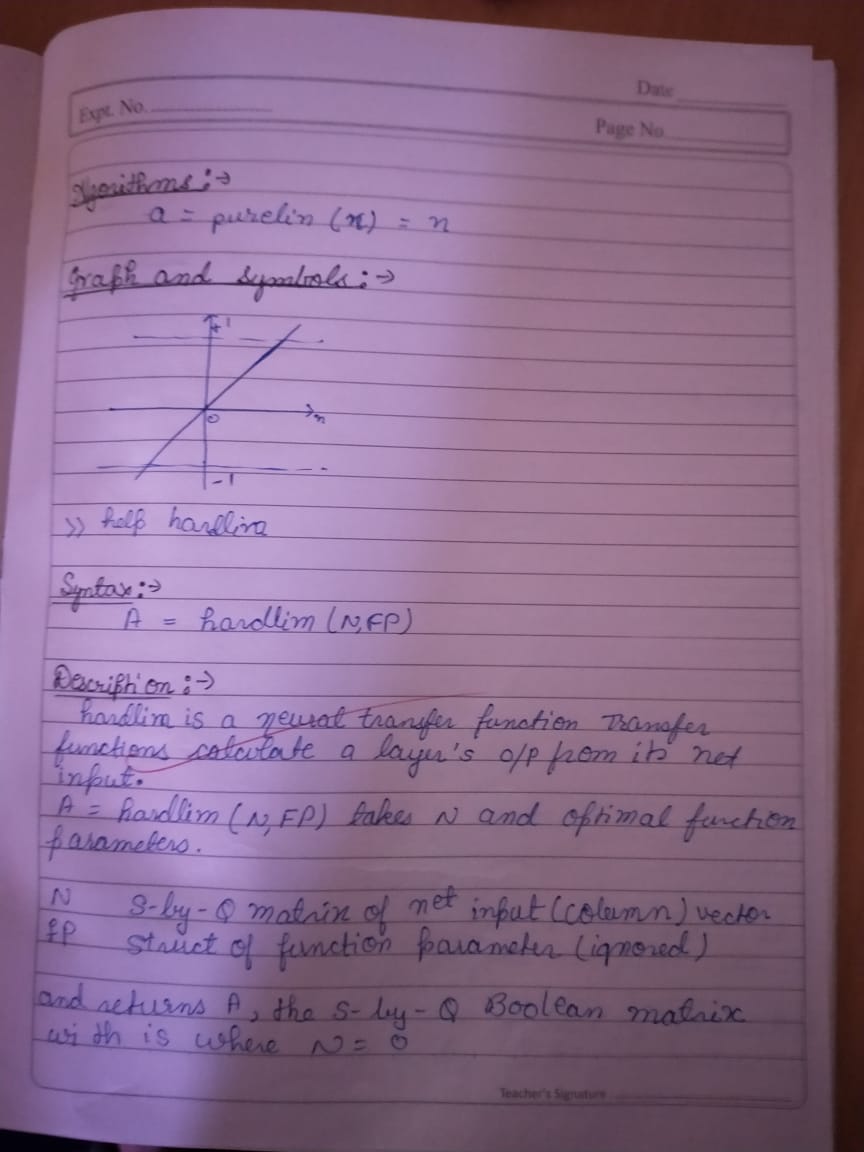 Date
Expt. No.
Page No.
Algorithms :→
a = purelin (n) = n
Graph and symbols :→
+1
0
n
-1
>> help hardlim
Syntax :→
A = hardlim (N,FP)
Description :→
hardlim is a neural transfer function Transfer
functions calculate a layer's o/p from its net
input.
A = hardlim (N, FP) takes N and optimal function
parameters.
N S-by-Q matrix of net input (column) vector
fp struct of function parameter (ignored)
and returns A, the S-by-Q Boolean matrix
with is where N = 0
Teacher's Signature